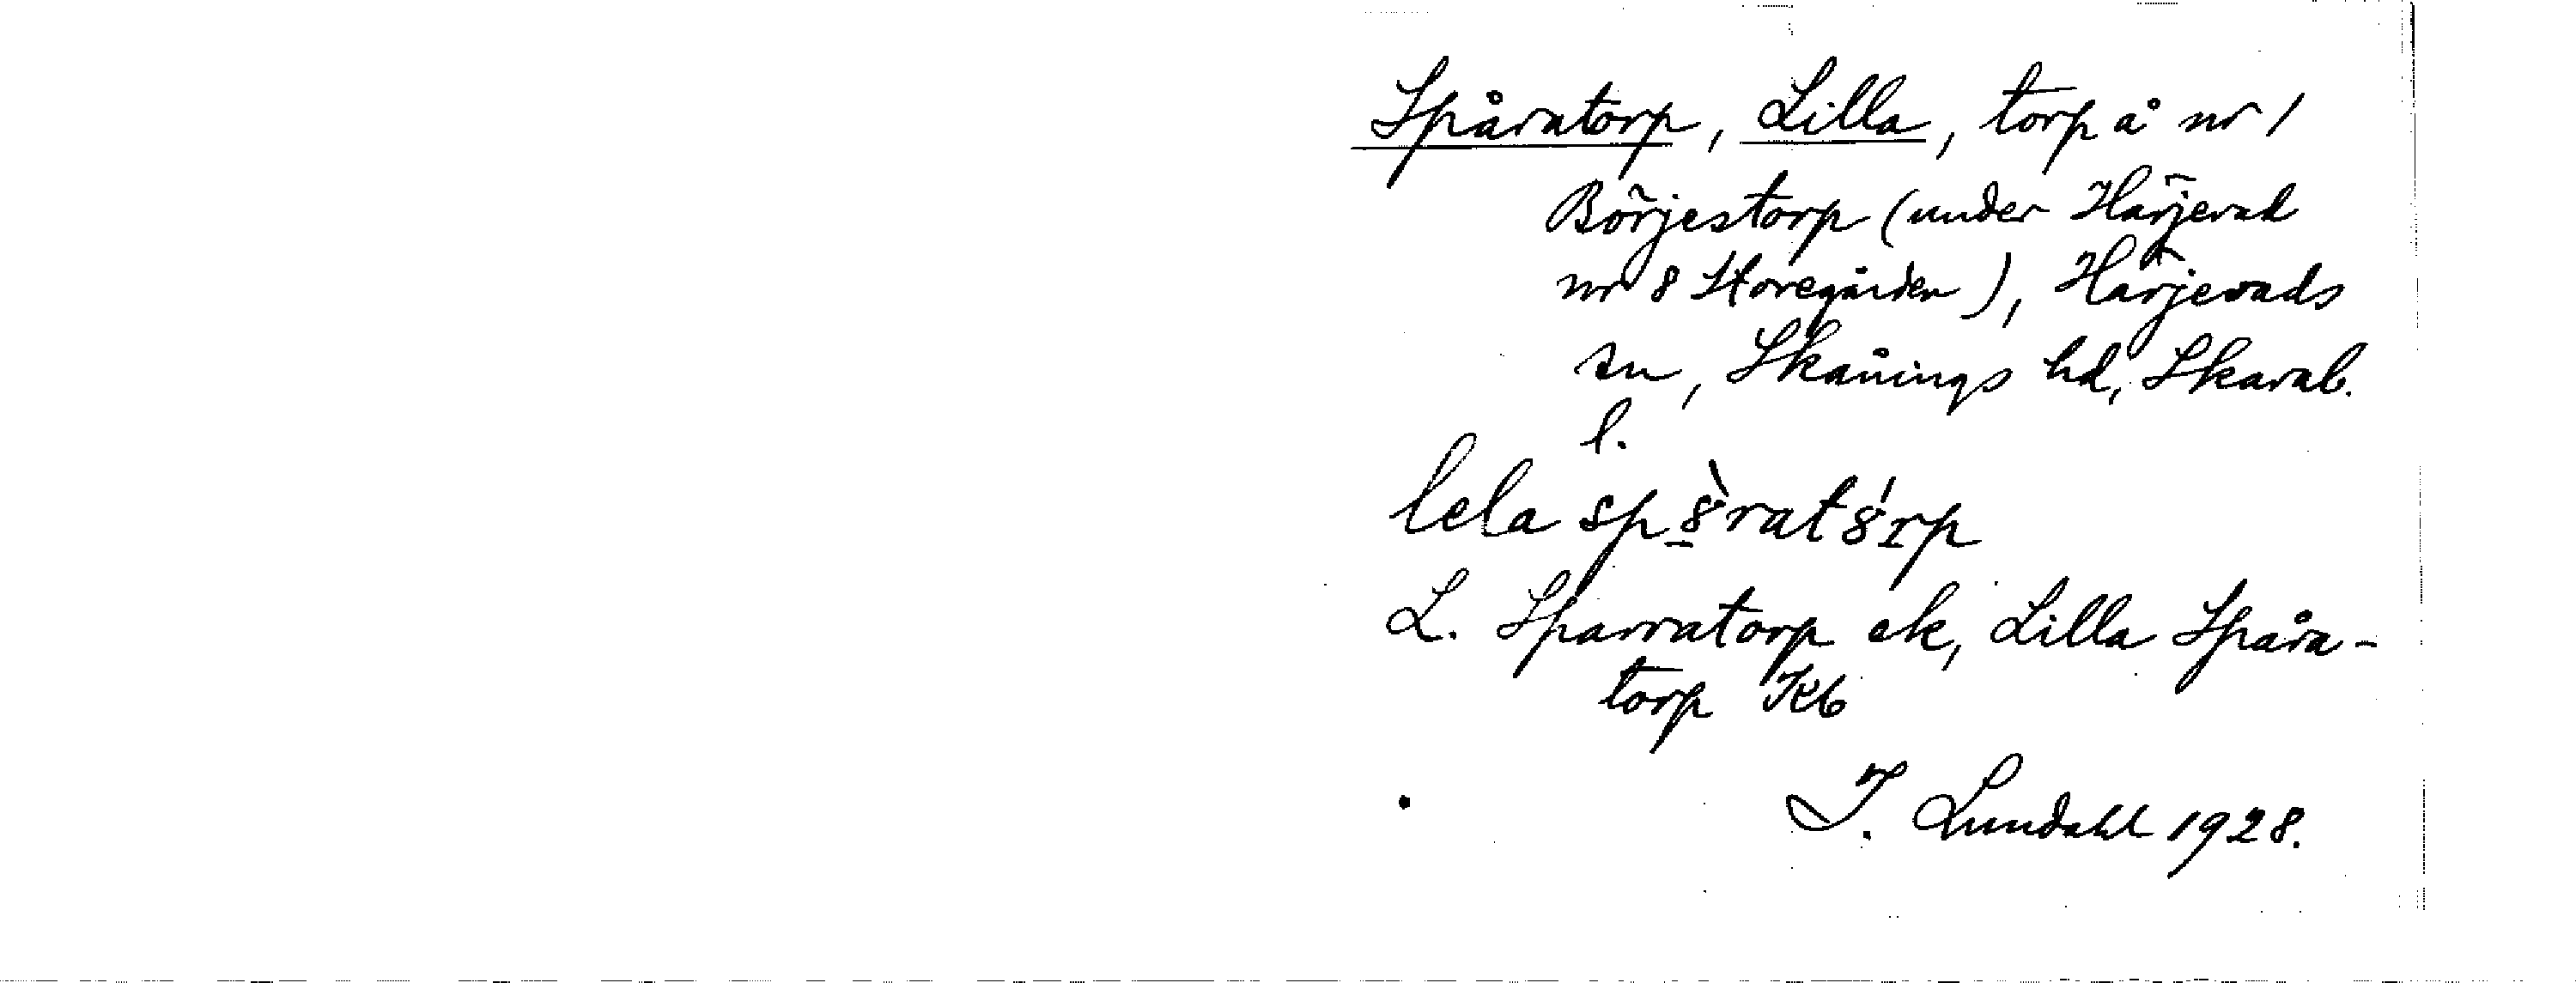 Spåratorp, Lilla, torp å nr 1
Börjestorp (under Härjevad
nr 8 Storegården), Härjevads
sn, Skånings hd, Skarab.
l.
lela sp8̱̀rat8́rp
L. Sparratorp ek, Lilla Spåra-
torp Kb
I. Lundahl 1928.